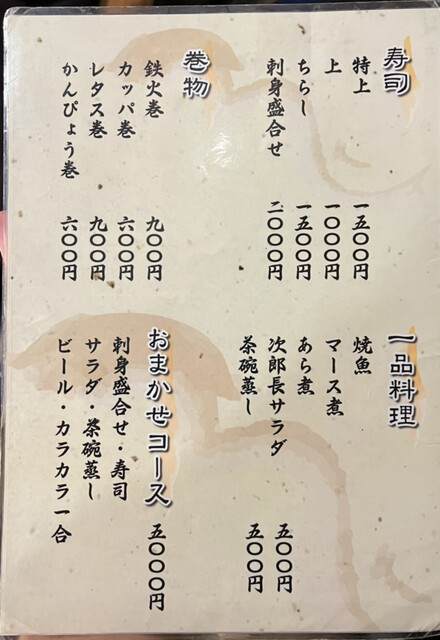 寿司
特上 一五〇〇円
上 一〇〇〇円
ちらし 一五〇〇円
刺身盛合せ 二〇〇〇円
巻物
鉄火巻 九〇〇円
カッパ巻 六〇〇円
レタス巻 九〇〇円
かんぴょう巻 六〇〇円
一品料理
焼魚
マース煮
あら煮
次郎長サラダ 五〇〇円
茶碗蒸し 五〇〇円
おまかせコース 五〇〇〇円
刺身盛合せ・寿司
サラダ・茶碗蒸し
ビール・カラカラ一合